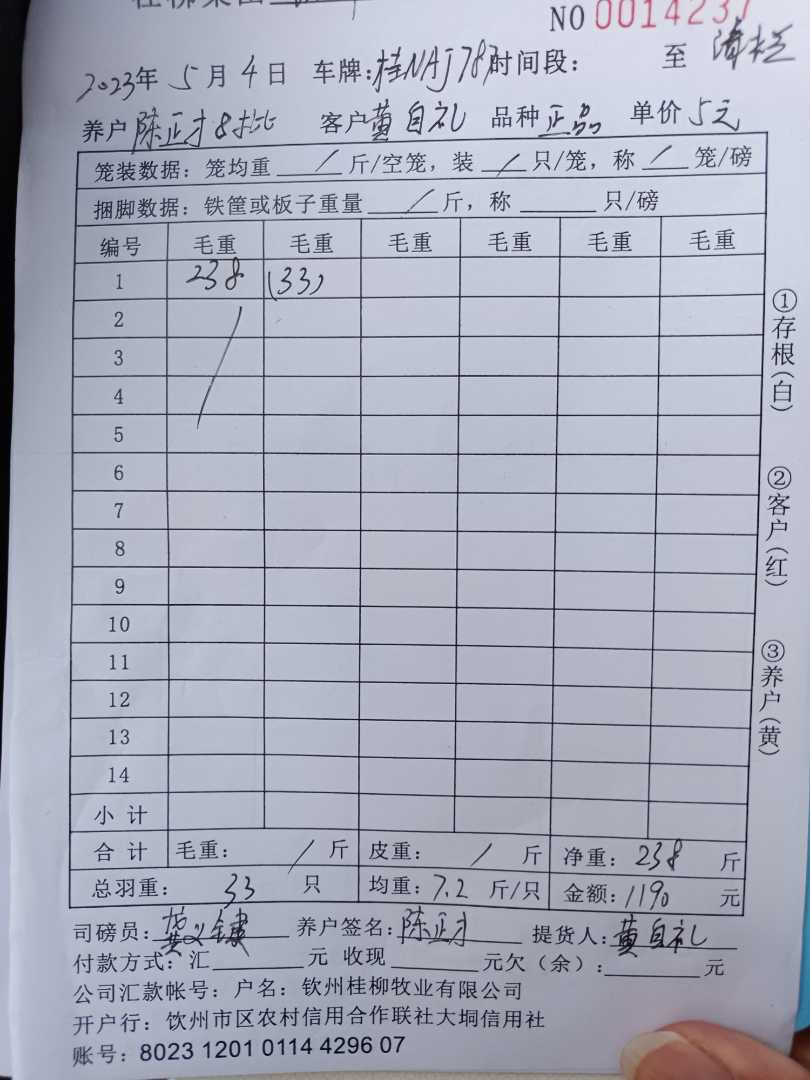 NO 0014237
2023年 5月4日 车牌：桂NAJ787 时间段： 至 清栏
养户 陈正才8批 客户 黄自礼 品种 正品 单价 5元
笼装数据：笼均重 / 斤/空笼，装 / 只/笼，称 / 笼/磅
捆脚数据：铁筐或板子重量 / 斤，称 只/磅
编号 毛重 毛重 毛重 毛重 毛重 毛重
1 238 (33)
2
3
4
5
6
7
8
9
10
11
12
13
14
小 计
合 计 毛重： / 斤 皮重： / 斤 净重：238 斤
总羽重： 33 只 均重：7.2 斤/只 金额：1190 元
司磅员： 养户签名：陈正才 提货人：黄自礼
付款方式：汇 元 收现 元欠（余）： 元
公司汇款帐号：户名：钦州桂柳牧业有限公司
开户行：饮州市区农村信用合作联社大垌信用社
账号：8023 1201 0114 4296 07
①存根（白）
②客户（红）
③养户（黄）